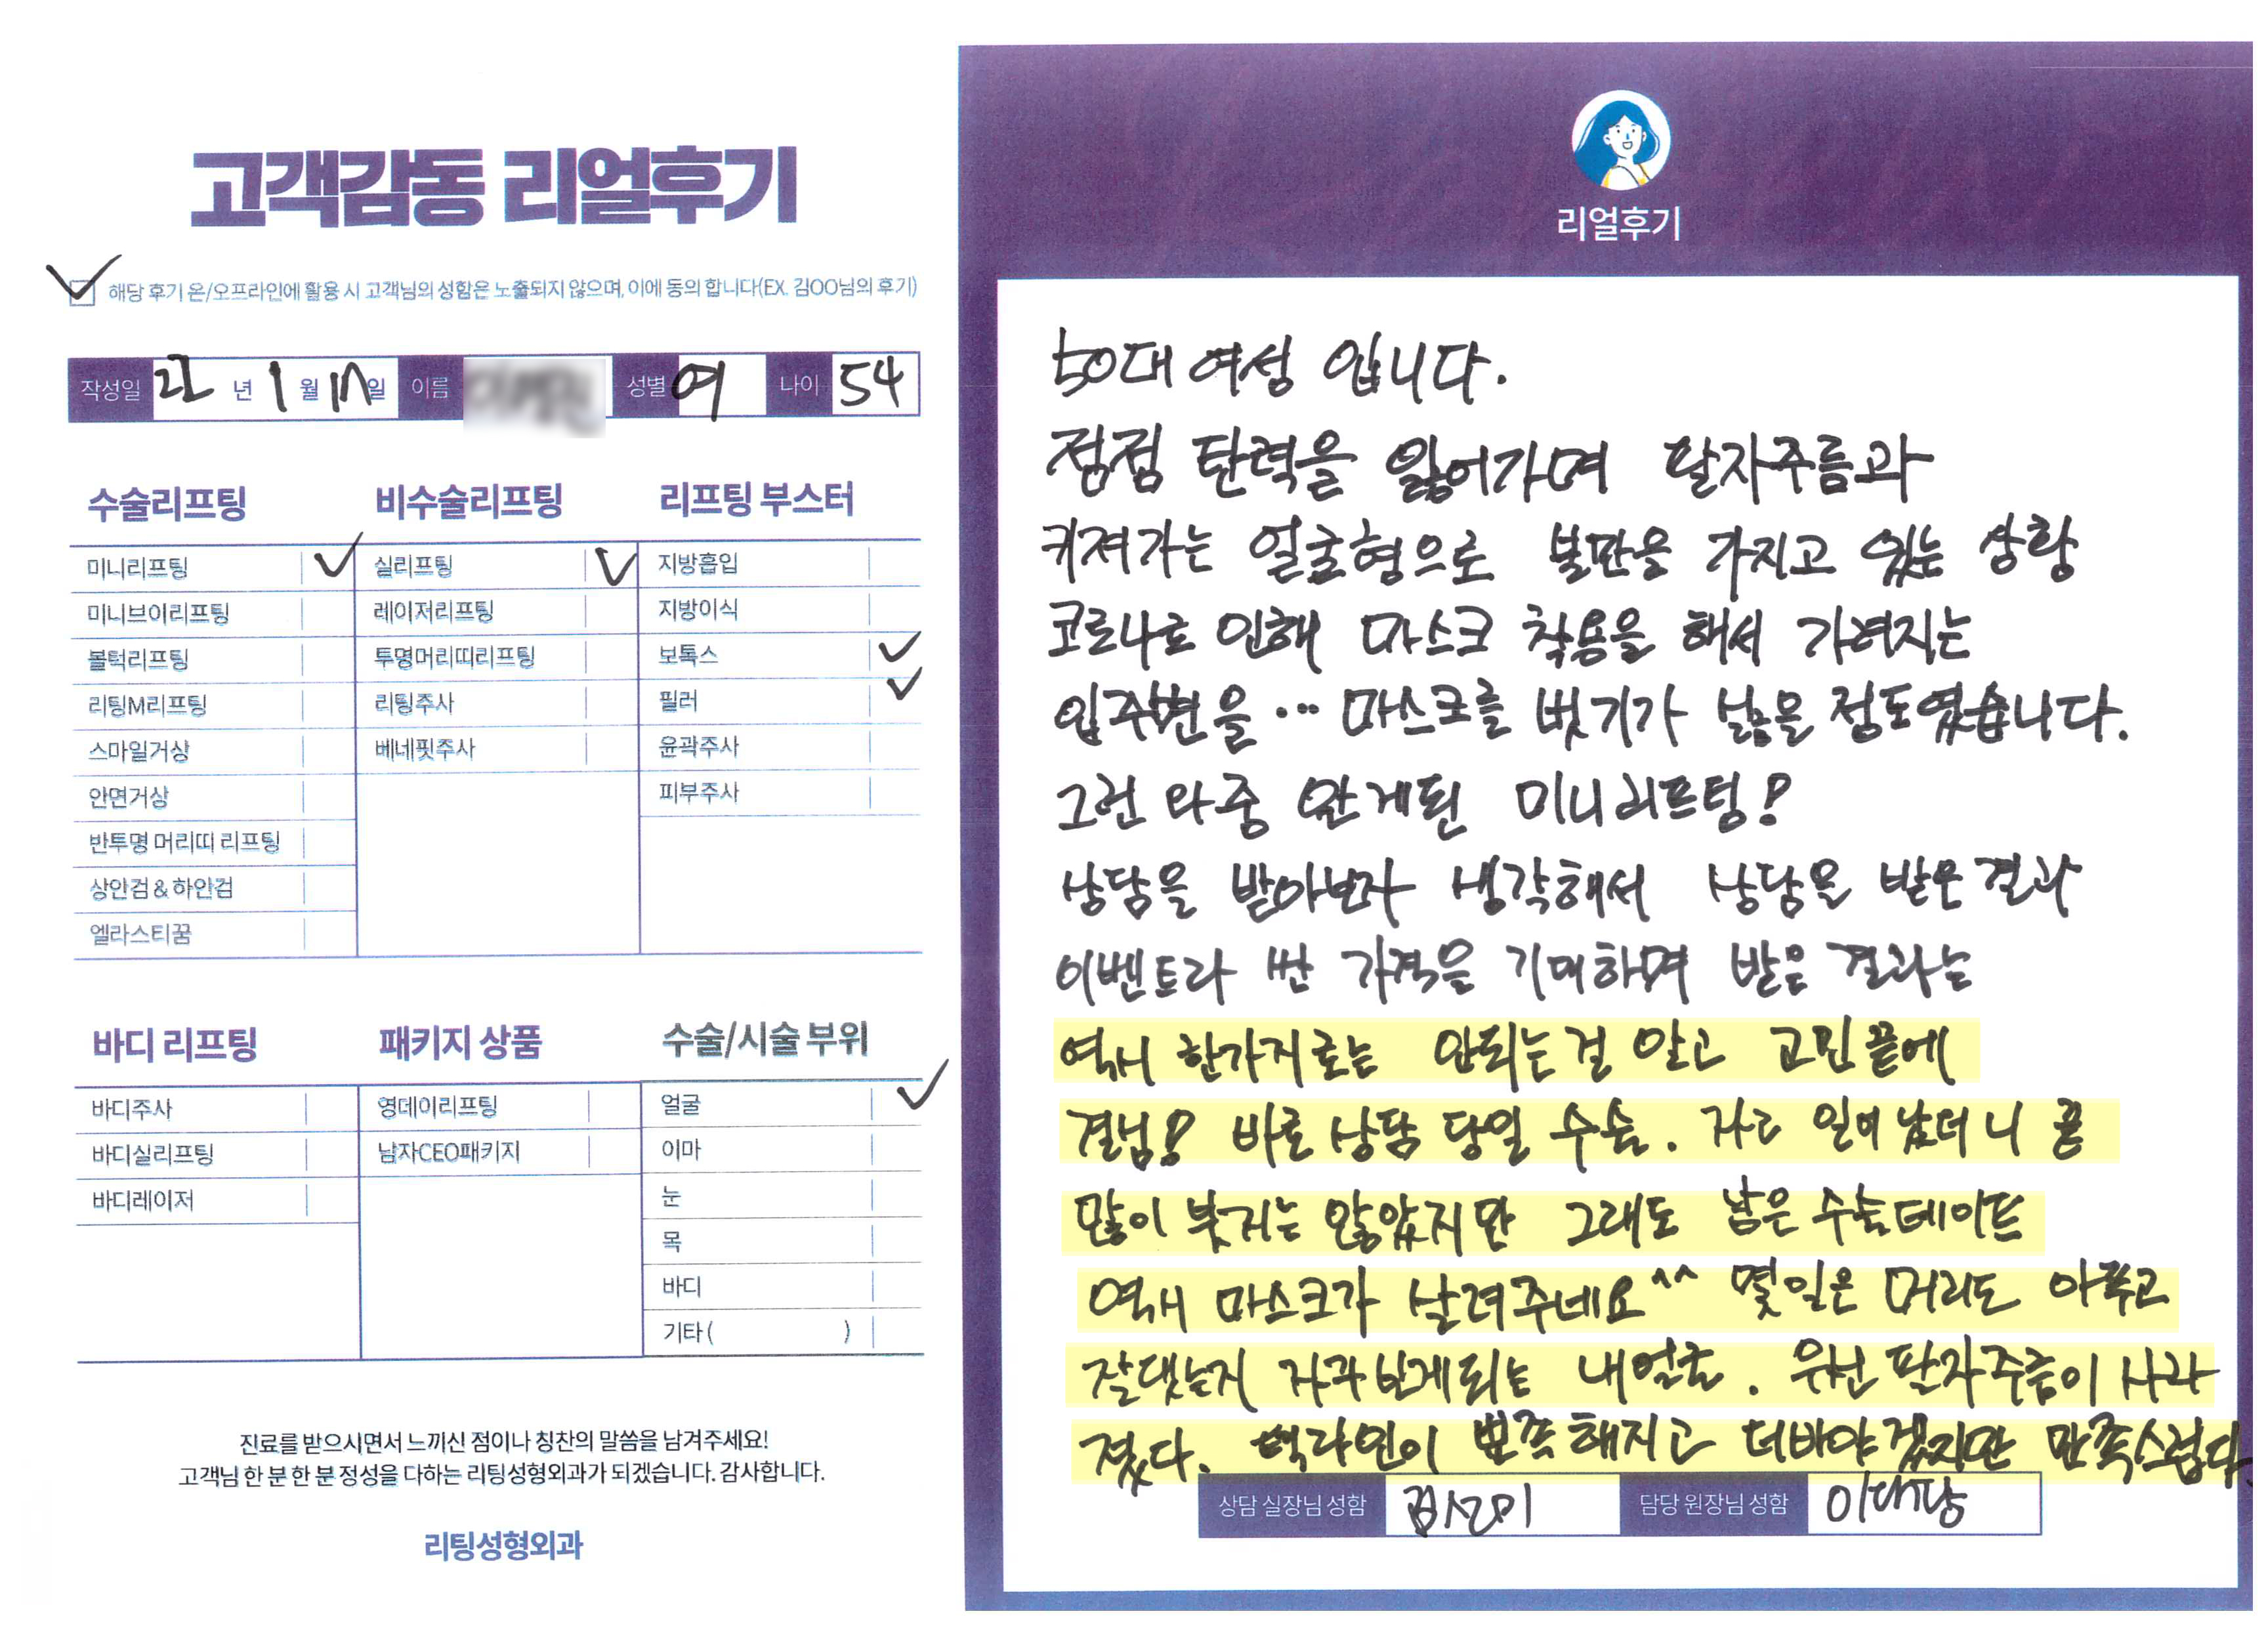 고객감동 리얼후기
해당 후기 온/오프라인에 활용 시 고객님의 성함은 노출되지 않으며, 이에 동의 합니다(EX. 김OO님의 후기)
작성일 22 년 1 월 일 이름 성별 여 나이 54
수술리프팅
미니리프팅
미니브이리프팅
볼턱리프팅
리팅M리프팅
스마일거상
안면거상
반투명 머리띠 리프팅
상안검 & 하안검
엘라스티꿈
비수술리프팅
실리프팅
레이저리프팅
투명머리띠리프팅
리팅주사
베네핏주사
리프팅 부스터
지방흡입
지방이식
보톡스
필러
윤곽주사
피부주사
바디 리프팅
바디주사
바디실리프팅
바디레이저
패키지 상품
영데이리프팅
남자CEO패키지
수술/시술 부위
얼굴
이마
눈
목
바디
기타 ( )
진료를 받으시면서 느끼신 점이나 칭찬의 말씀을 남겨주세요!
고객님 한 분 한 분 정성을 다하는 리팅성형외과가 되겠습니다. 감사합니다.
리팅성형외과
리얼후기
50대 여성 입니다.
점점 탄력을 잃어가며 팔자주름과
커져가는 얼굴형으로 불만을 가지고 있는 상황
코로나로 인해 마스크 착용을 해서 가려지는
입주변을 … 마스크를 벗기가 싫을 정도였습니다.
그런 와중 알게된 미니리프팅!
상담을 받아보자 생각해서 상담을 받은 결과
이벤트라 싼 가격을 기대하며 받은 결과는
역시 한가지로는 안되는걸 알고 고민끝에
결심! 바로 상담 당일 수술. 자고 일어났더니
많이 붓지는 않았지만 그래도 남은 수술테이프
역시 마스크가 살려주네요^^ 몇일은 머리도 아푸고
잘됐는지 자꾸보게되는 내얼굴. 우선 팔자주름이 사라
졌다. 턱라인이 뾰족해지고 더봐야겠지만 만족스럽다.
상담 실장님 성함
담당 원장님 성함 이대당